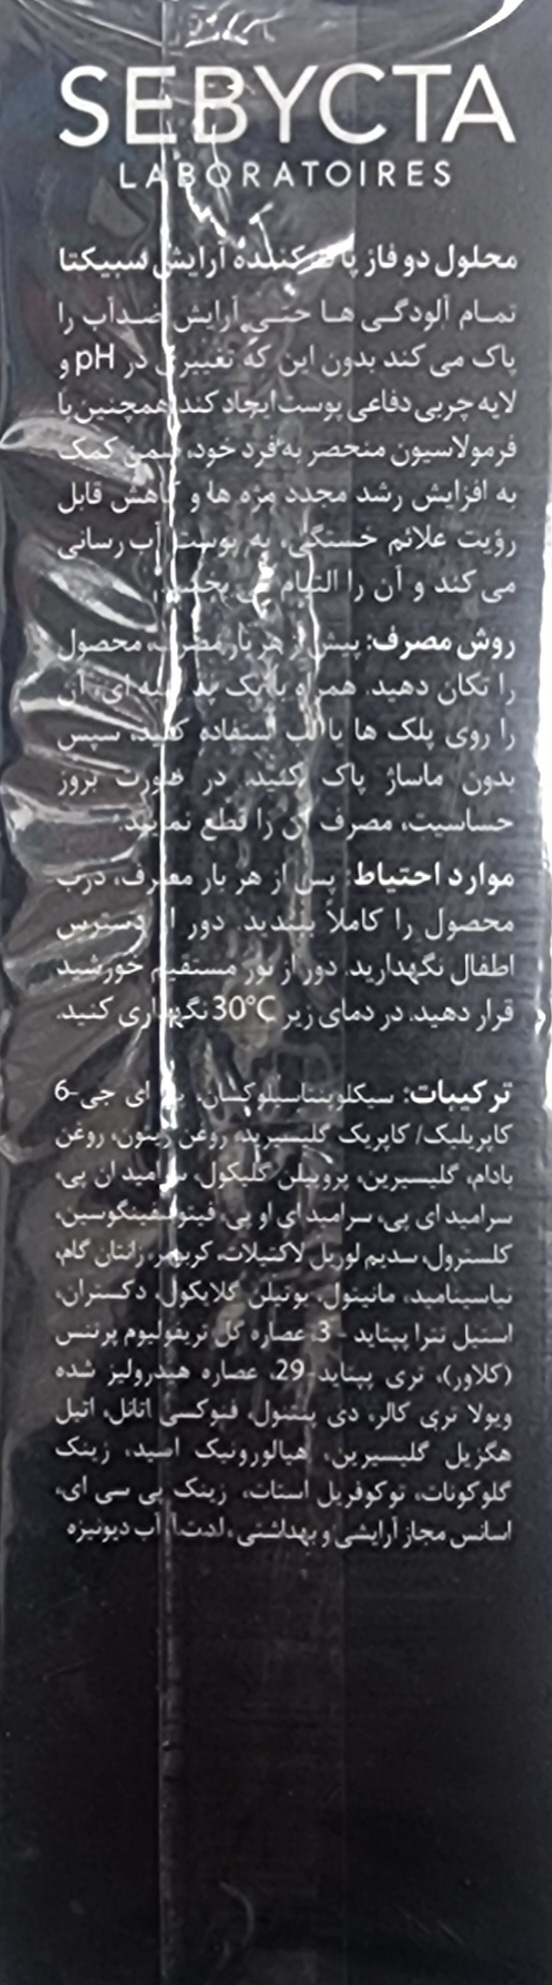 SEBYCTA
LABORATOIRES
محلول دو فاز پاک کننده آرایش سبیکتا
تمام آلودگی ها حتی آرایش ضدآب را
پاک می کند بدون این که تغییری در pH و
لایه چربی دفاعی پوست ایجاد کند. همچنین با
فرمولاسیون منحصر به فرد خود، ضمن کمک
به افزایش رشد مجدد مژه ها و کاهش قابل
رؤیت علائم خستگی، به پوست آب رسانی
می کند و آن را التیام می بخشد.
روش مصرف: پیش از هر بار مصرف، محصول
را تکان دهید. همراه با یک پد پنبه ای، آن
را روی پلک ها یا لب استفاده کنید، سپس
بدون ماساژ پاک کنید. در صورت بروز
حساسیت، مصرف آن را قطع نمایید.
موارد احتیاط: پس از هر بار مصرف، درب
محصول را کاملاً ببندید. دور از دسترس
اطفال نگهدارید. دور از نور مستقیم خورشید
قرار دهید. در دمای زیر 30°C نگهداری کنید.
ترکیبات: سیکلوپنتاسیلوکسان، پی ای جی-6
کاپریلیک/ کاپریک گلیسیرید، روغن زیتون، روغن
بادام، گلیسیرین، پروپیلن گلیکول، سرامید ان پی،
سرامید ای پی، سرامید ای او پی، فیتواسفینگوسین،
کلسترول، سدیم لوریل لاکتیلات، کربومر، زانتان گام،
نیاسینامید، مانیتول، بوتیلن گلایکول، دکستران،
استیل تترا پپتاید - 3، عصاره گل تریفولیوم پرتنس
(کلاور)، تری پپتاید-29، عصاره هیدرولیز شده
ویولا تری کالر، دی پنتنول، فنوکسی اتانل، اتیل
هگزیل گلیسیرین، هیالورونیک اسید، زینک
گلوکونات، توکوفریل استات، زینک پی سی ای،
اسانس مجاز آرایشی و بهداشتی، آب دیونیزه